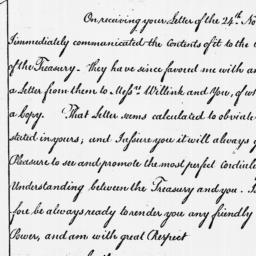 On receiving your Letter of the 24th. No
Immediately communicated the Contents of it to the
of the Treasury. They have since favored me with a
a Letter from them to Messrs. Willink and You, of w
a Copy. That Letter seems calculated to obviate
stated in yours; and I assure you it will always
Pleasure to see and promote the most perfect Cordial
Understanding between the Treasury and you. I
fore be always ready to render you any friendly
Power, and am with great Respect